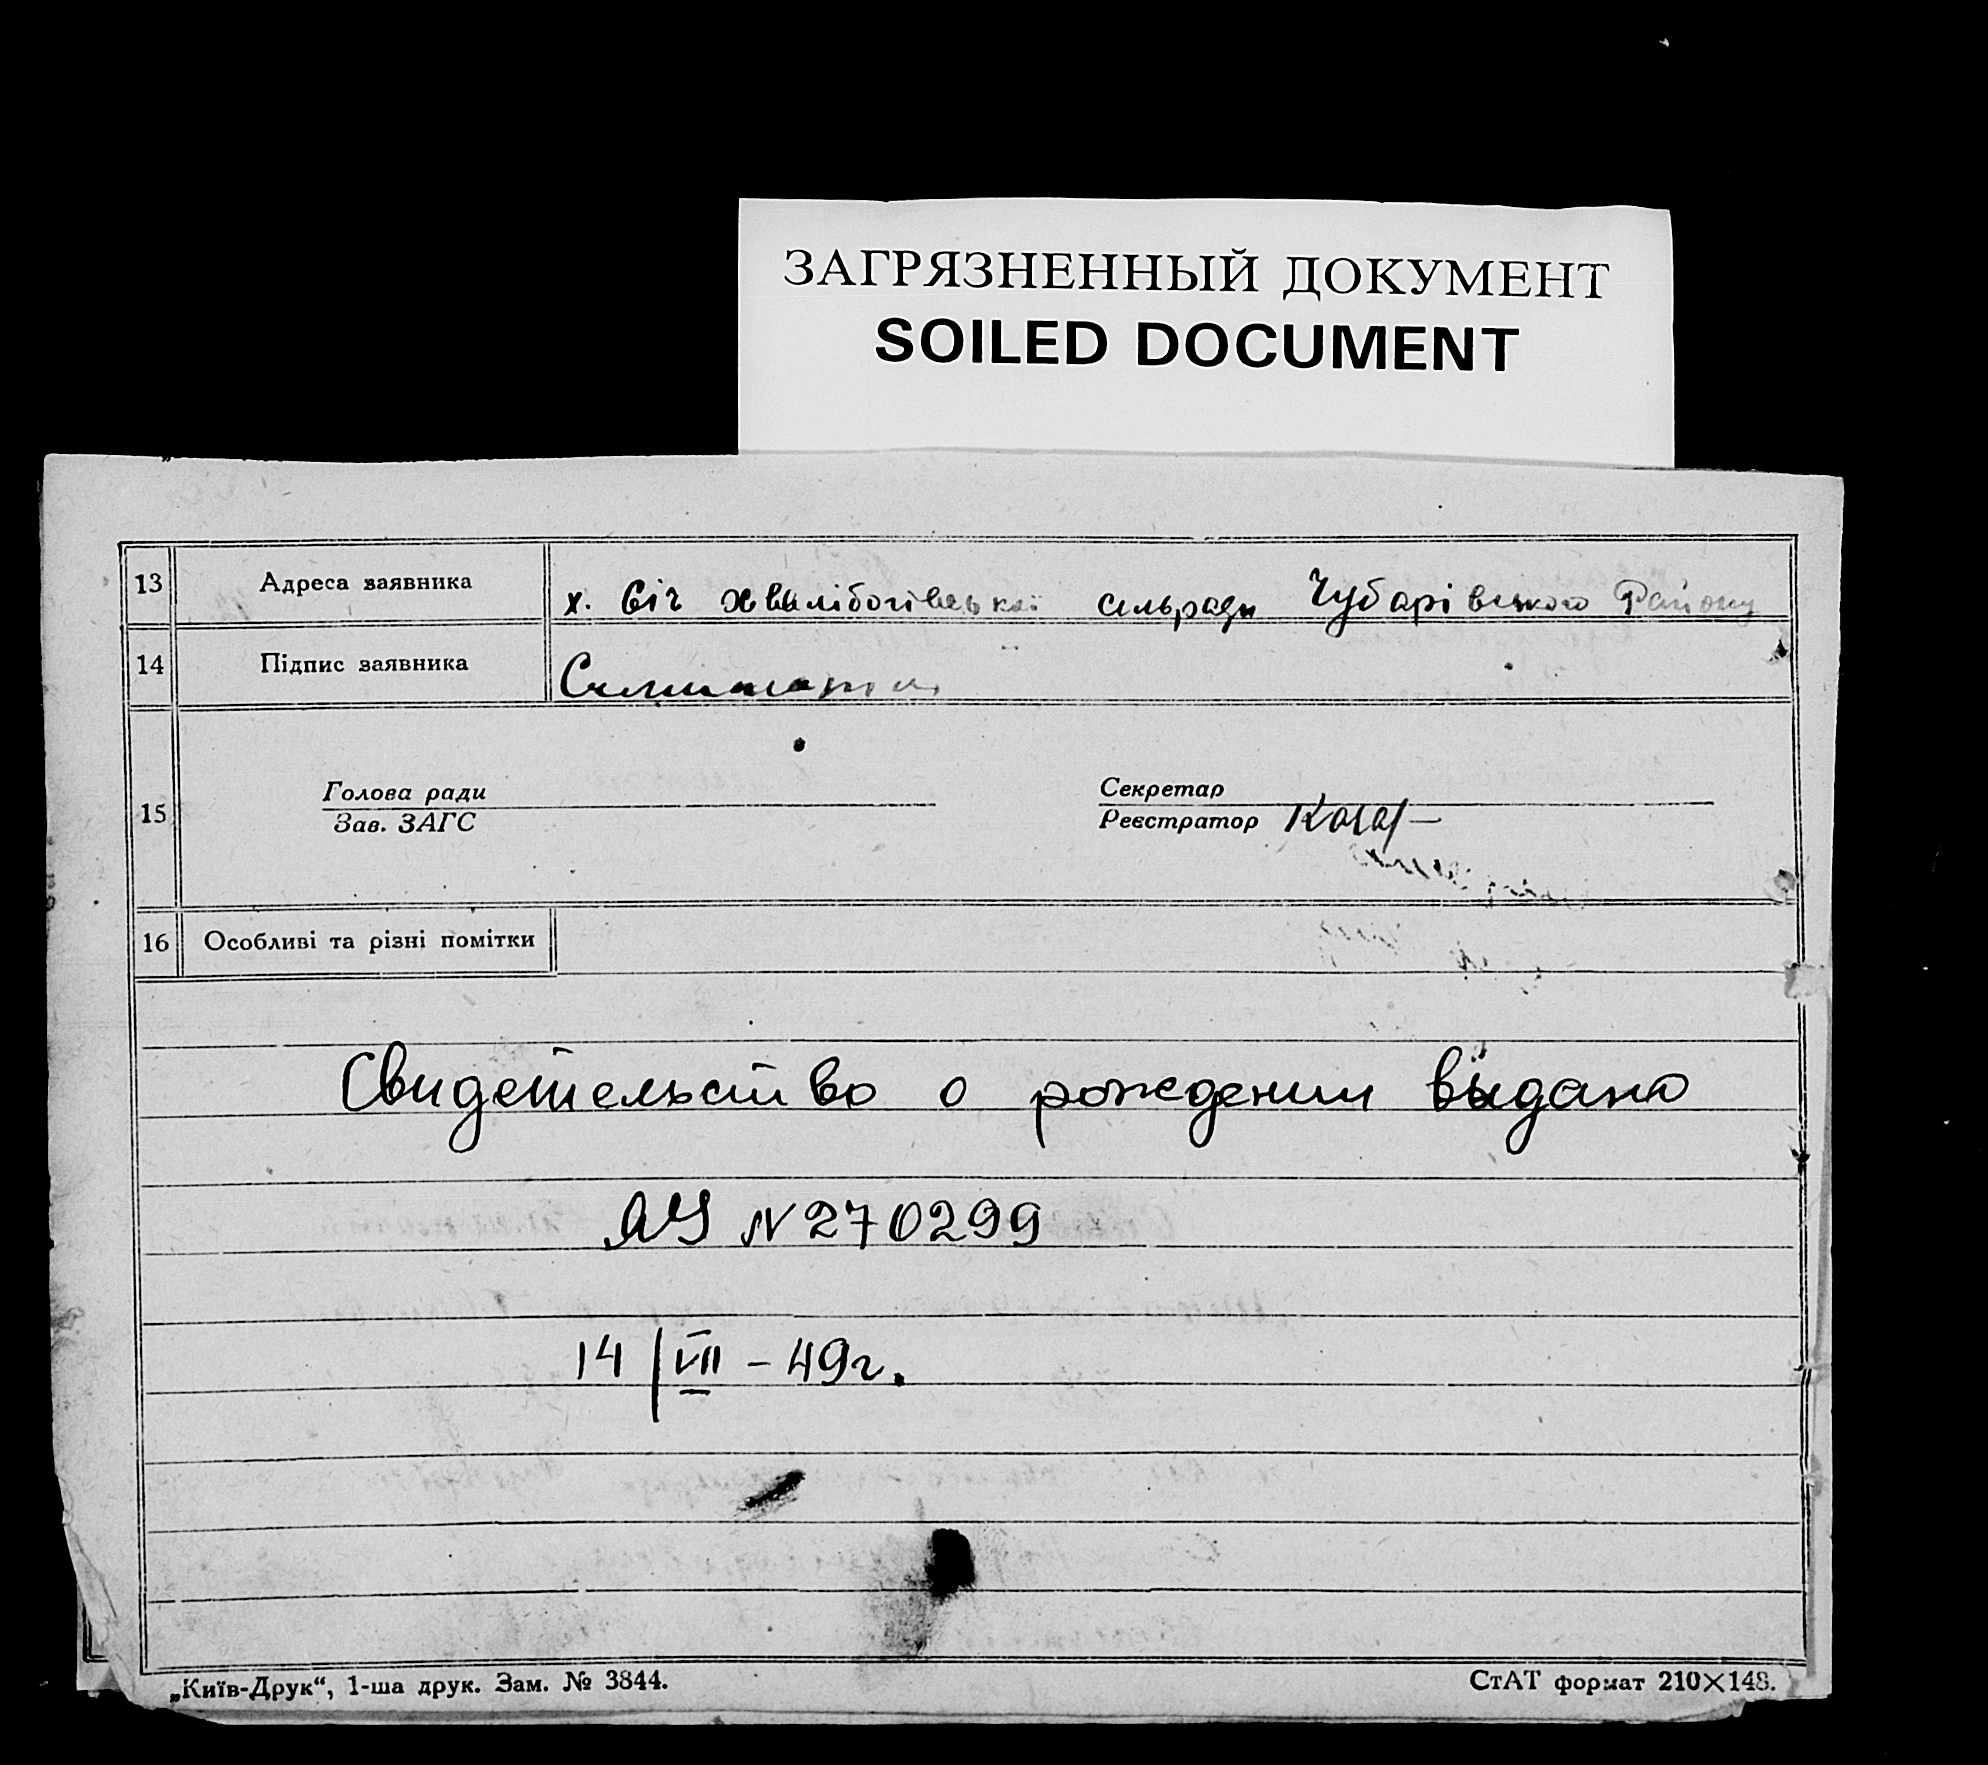 ЗАГРЯЗНЕННЫЙ ДОКУМЕНТ
SOILED DOCUMENT
13 Адреса заявника х. Січ сільради Чубарівського Району
14 Підпис заявника
15 Голова ради Секретар
Зав. ЗАГС Реєстратор
16 Особливі та різні помітки
Свидетельство о рождении выдано
ЯУ N 270299
14/VII - 49г.
„Київ-Друк“, 1-ша друк. Зам. № 3844. СтАТ формат 210×148.